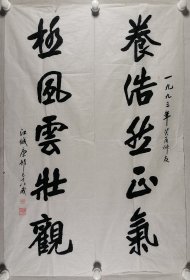 養浩然正氣
一九九三年
極風雲壯觀
江城